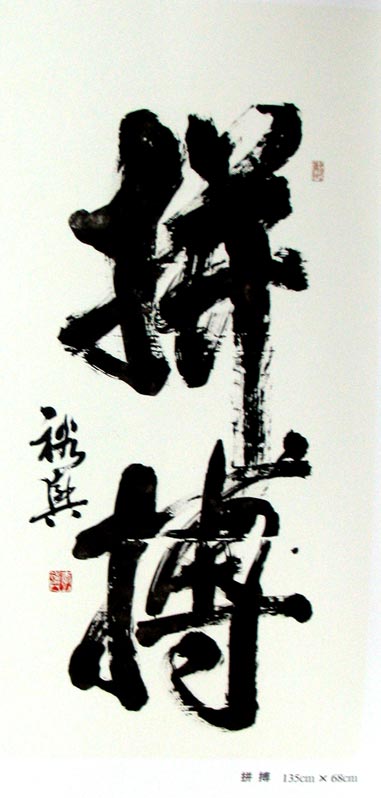 拼搏
裕兴
拼 搏 135cm × 68cm